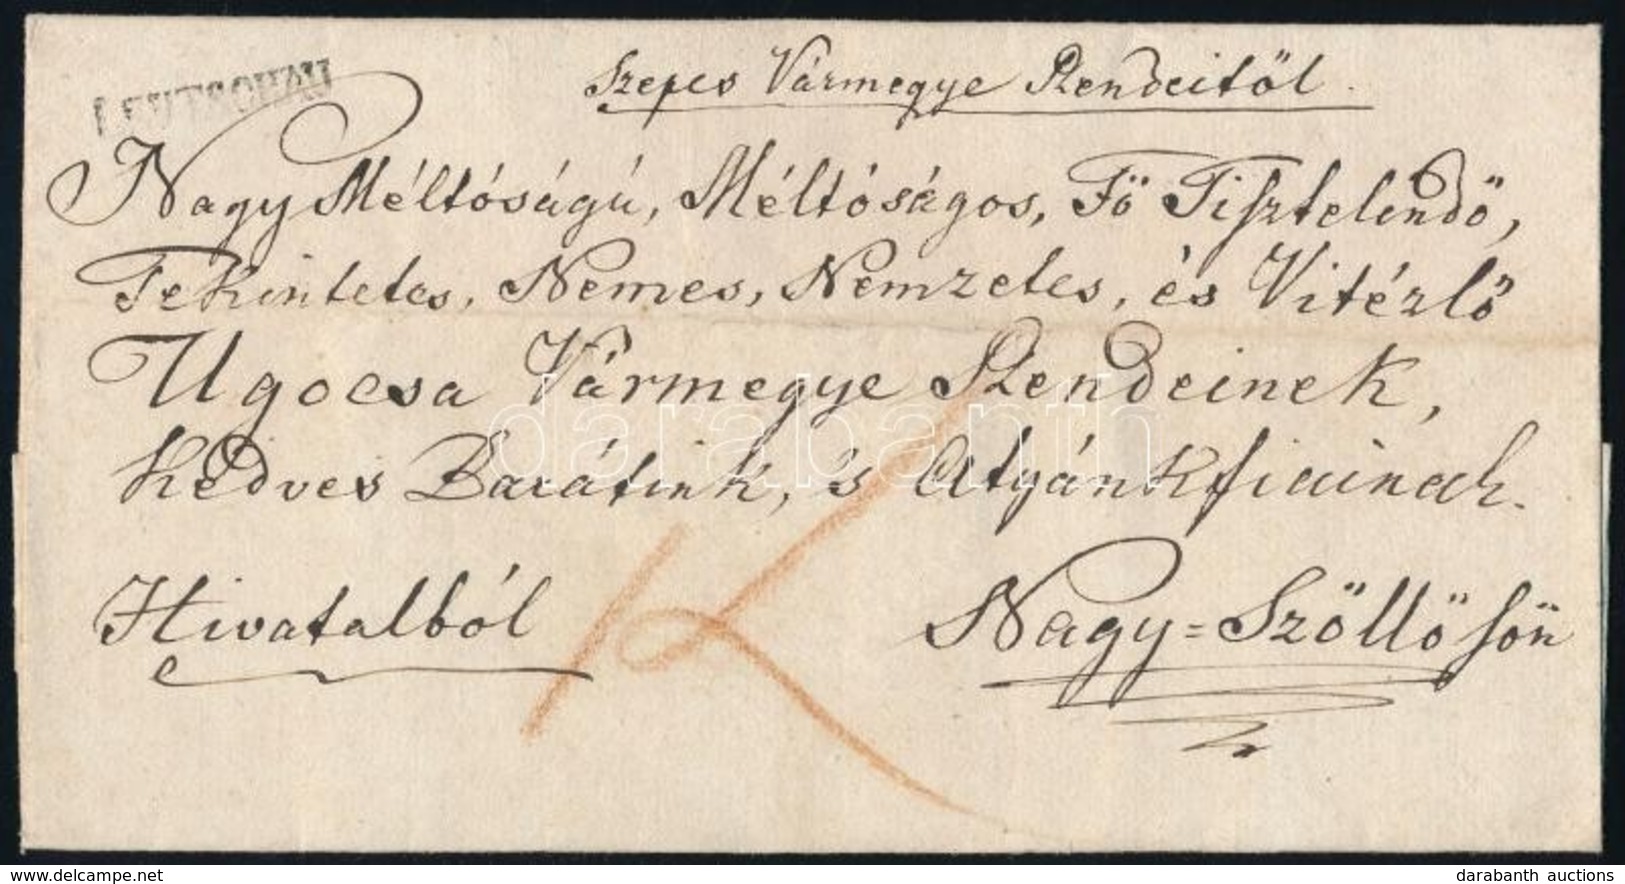 LEUTSCHAU
Szepes Vármegye Rendeitől.
Nagy Méltóságú, Méltóságos, Fő Tisztelendő,
Tekintetes, Nemes, Nemzetes, és Vitézlő
Ugocsa Vármegye Rendeinek,
Kedves Barátink, 's Atyánkfiainak.
Hivatalból
Nagy=Szöllösön
darabanth
delcampe.net
darabanth auctions